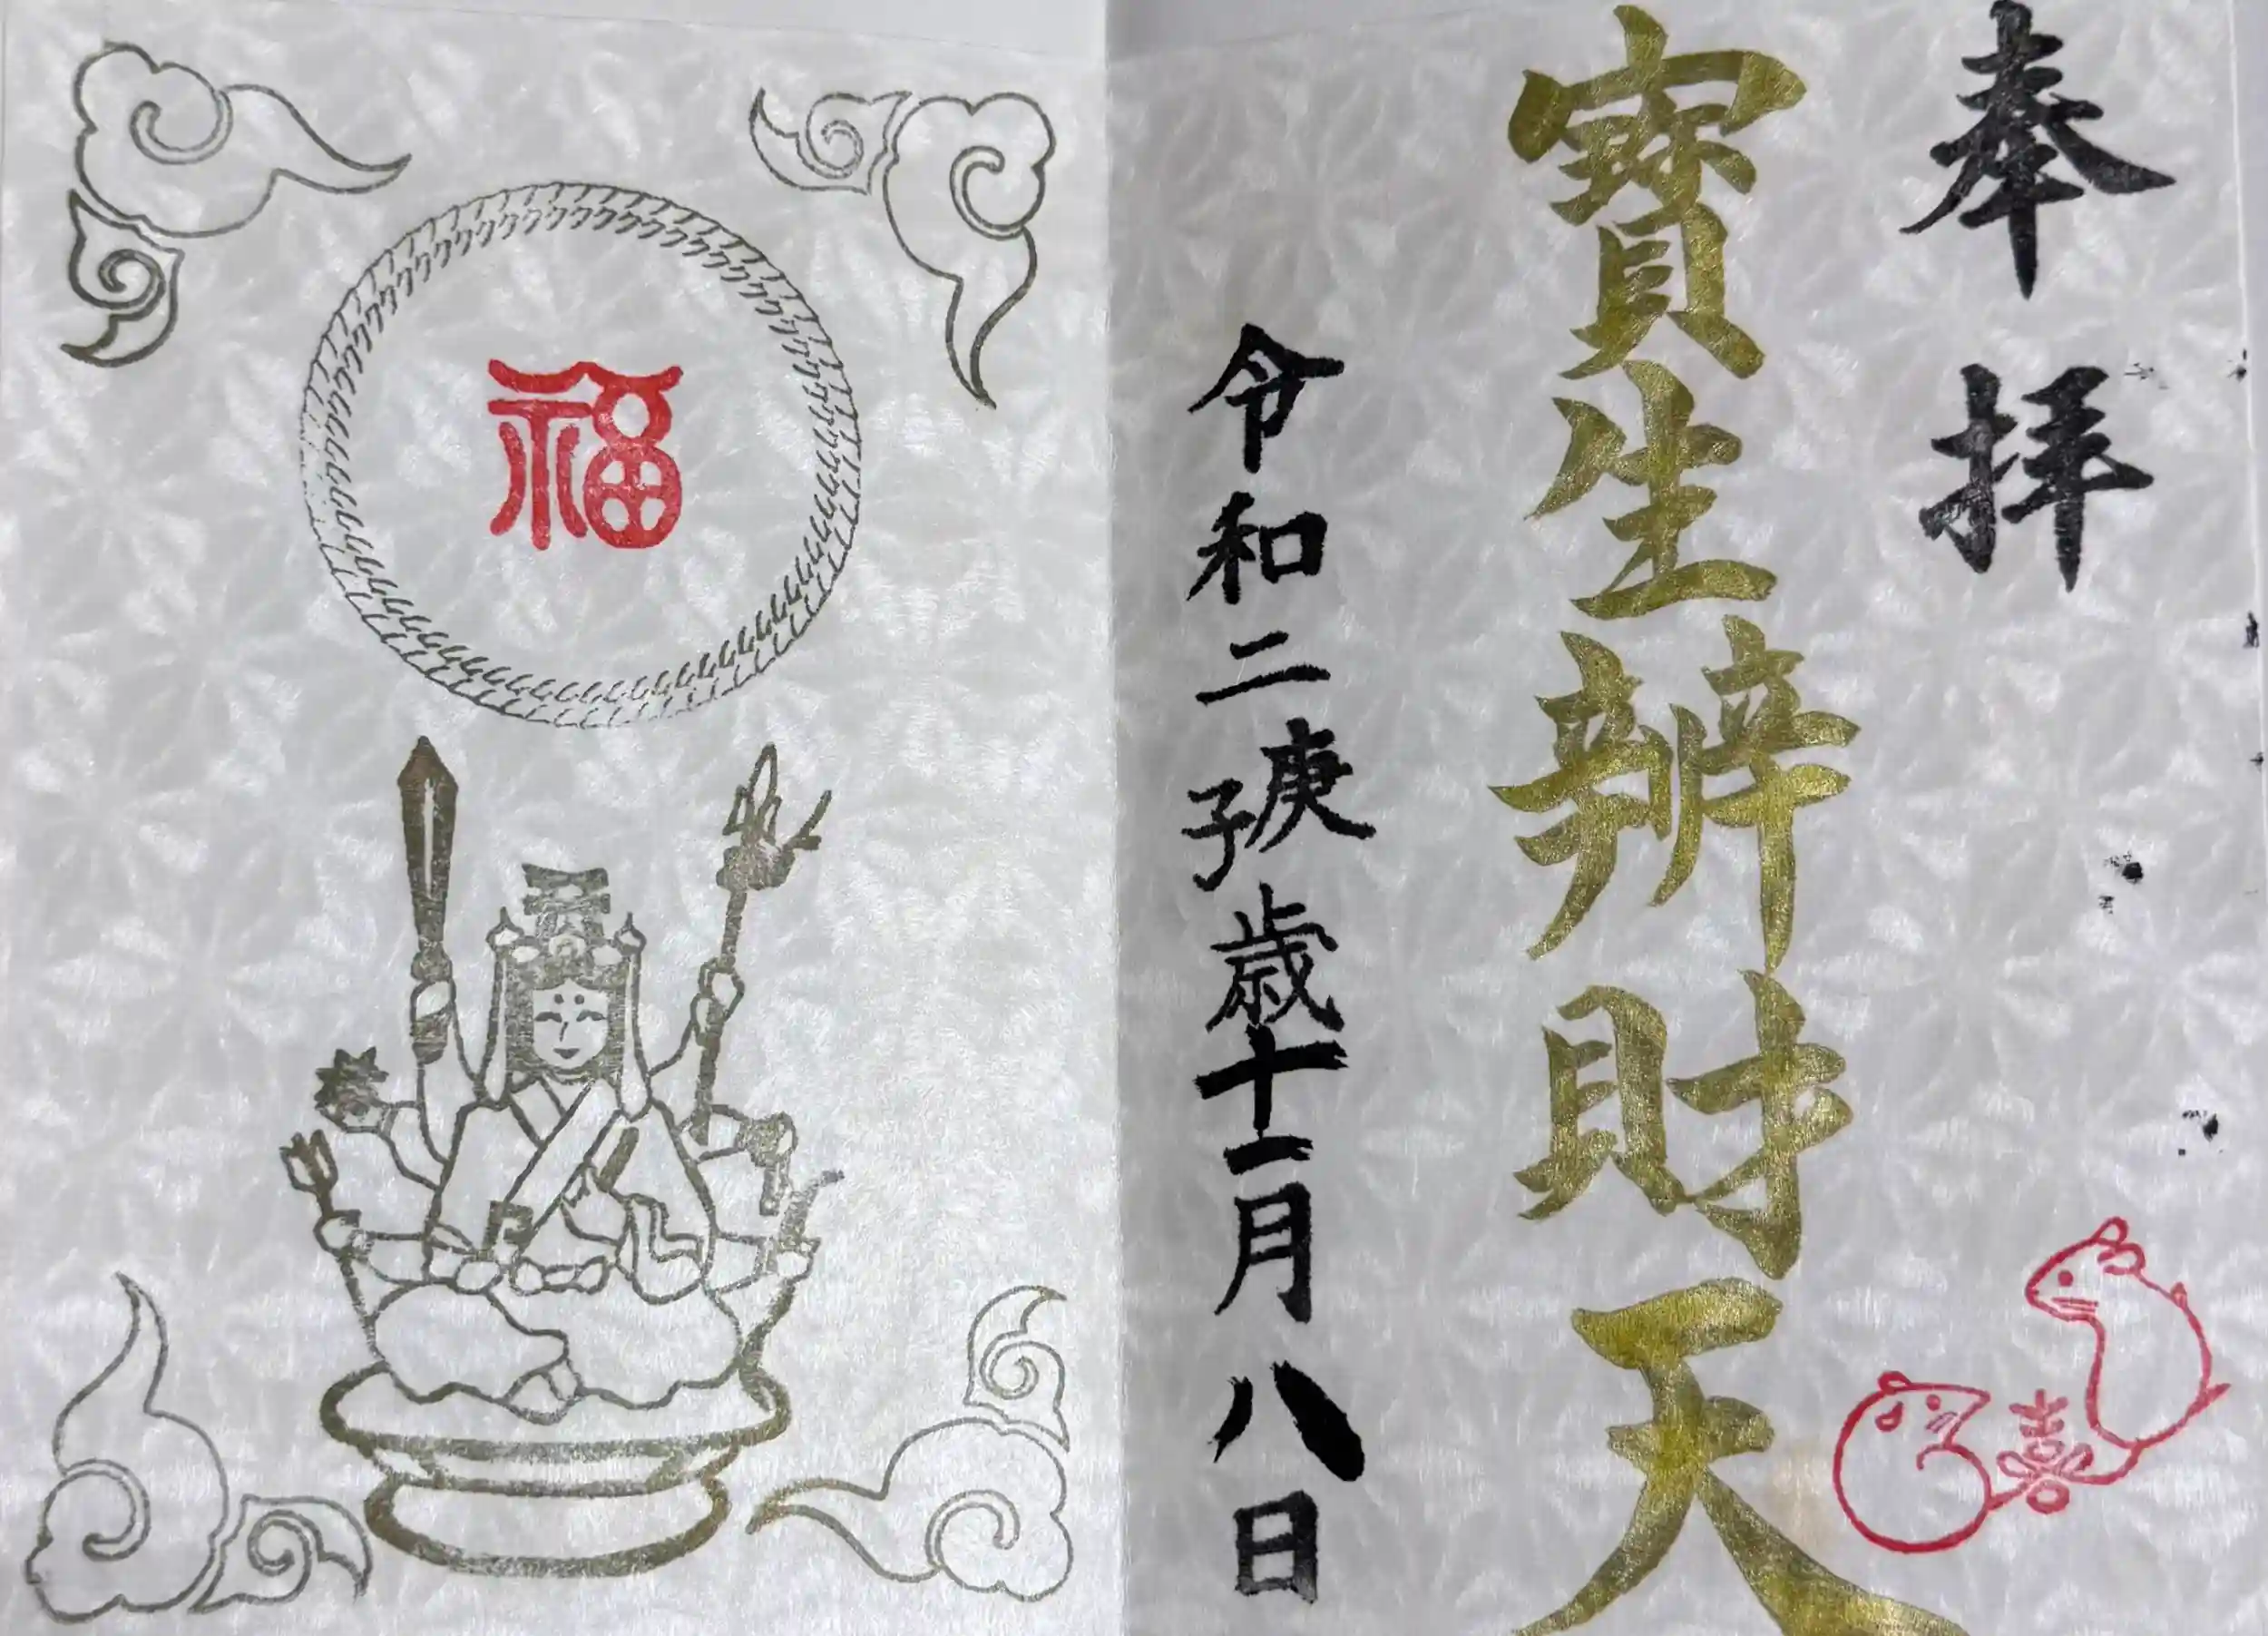 奉拝
寶生辨財天
令和二庚子歳十一月八日
福
喜